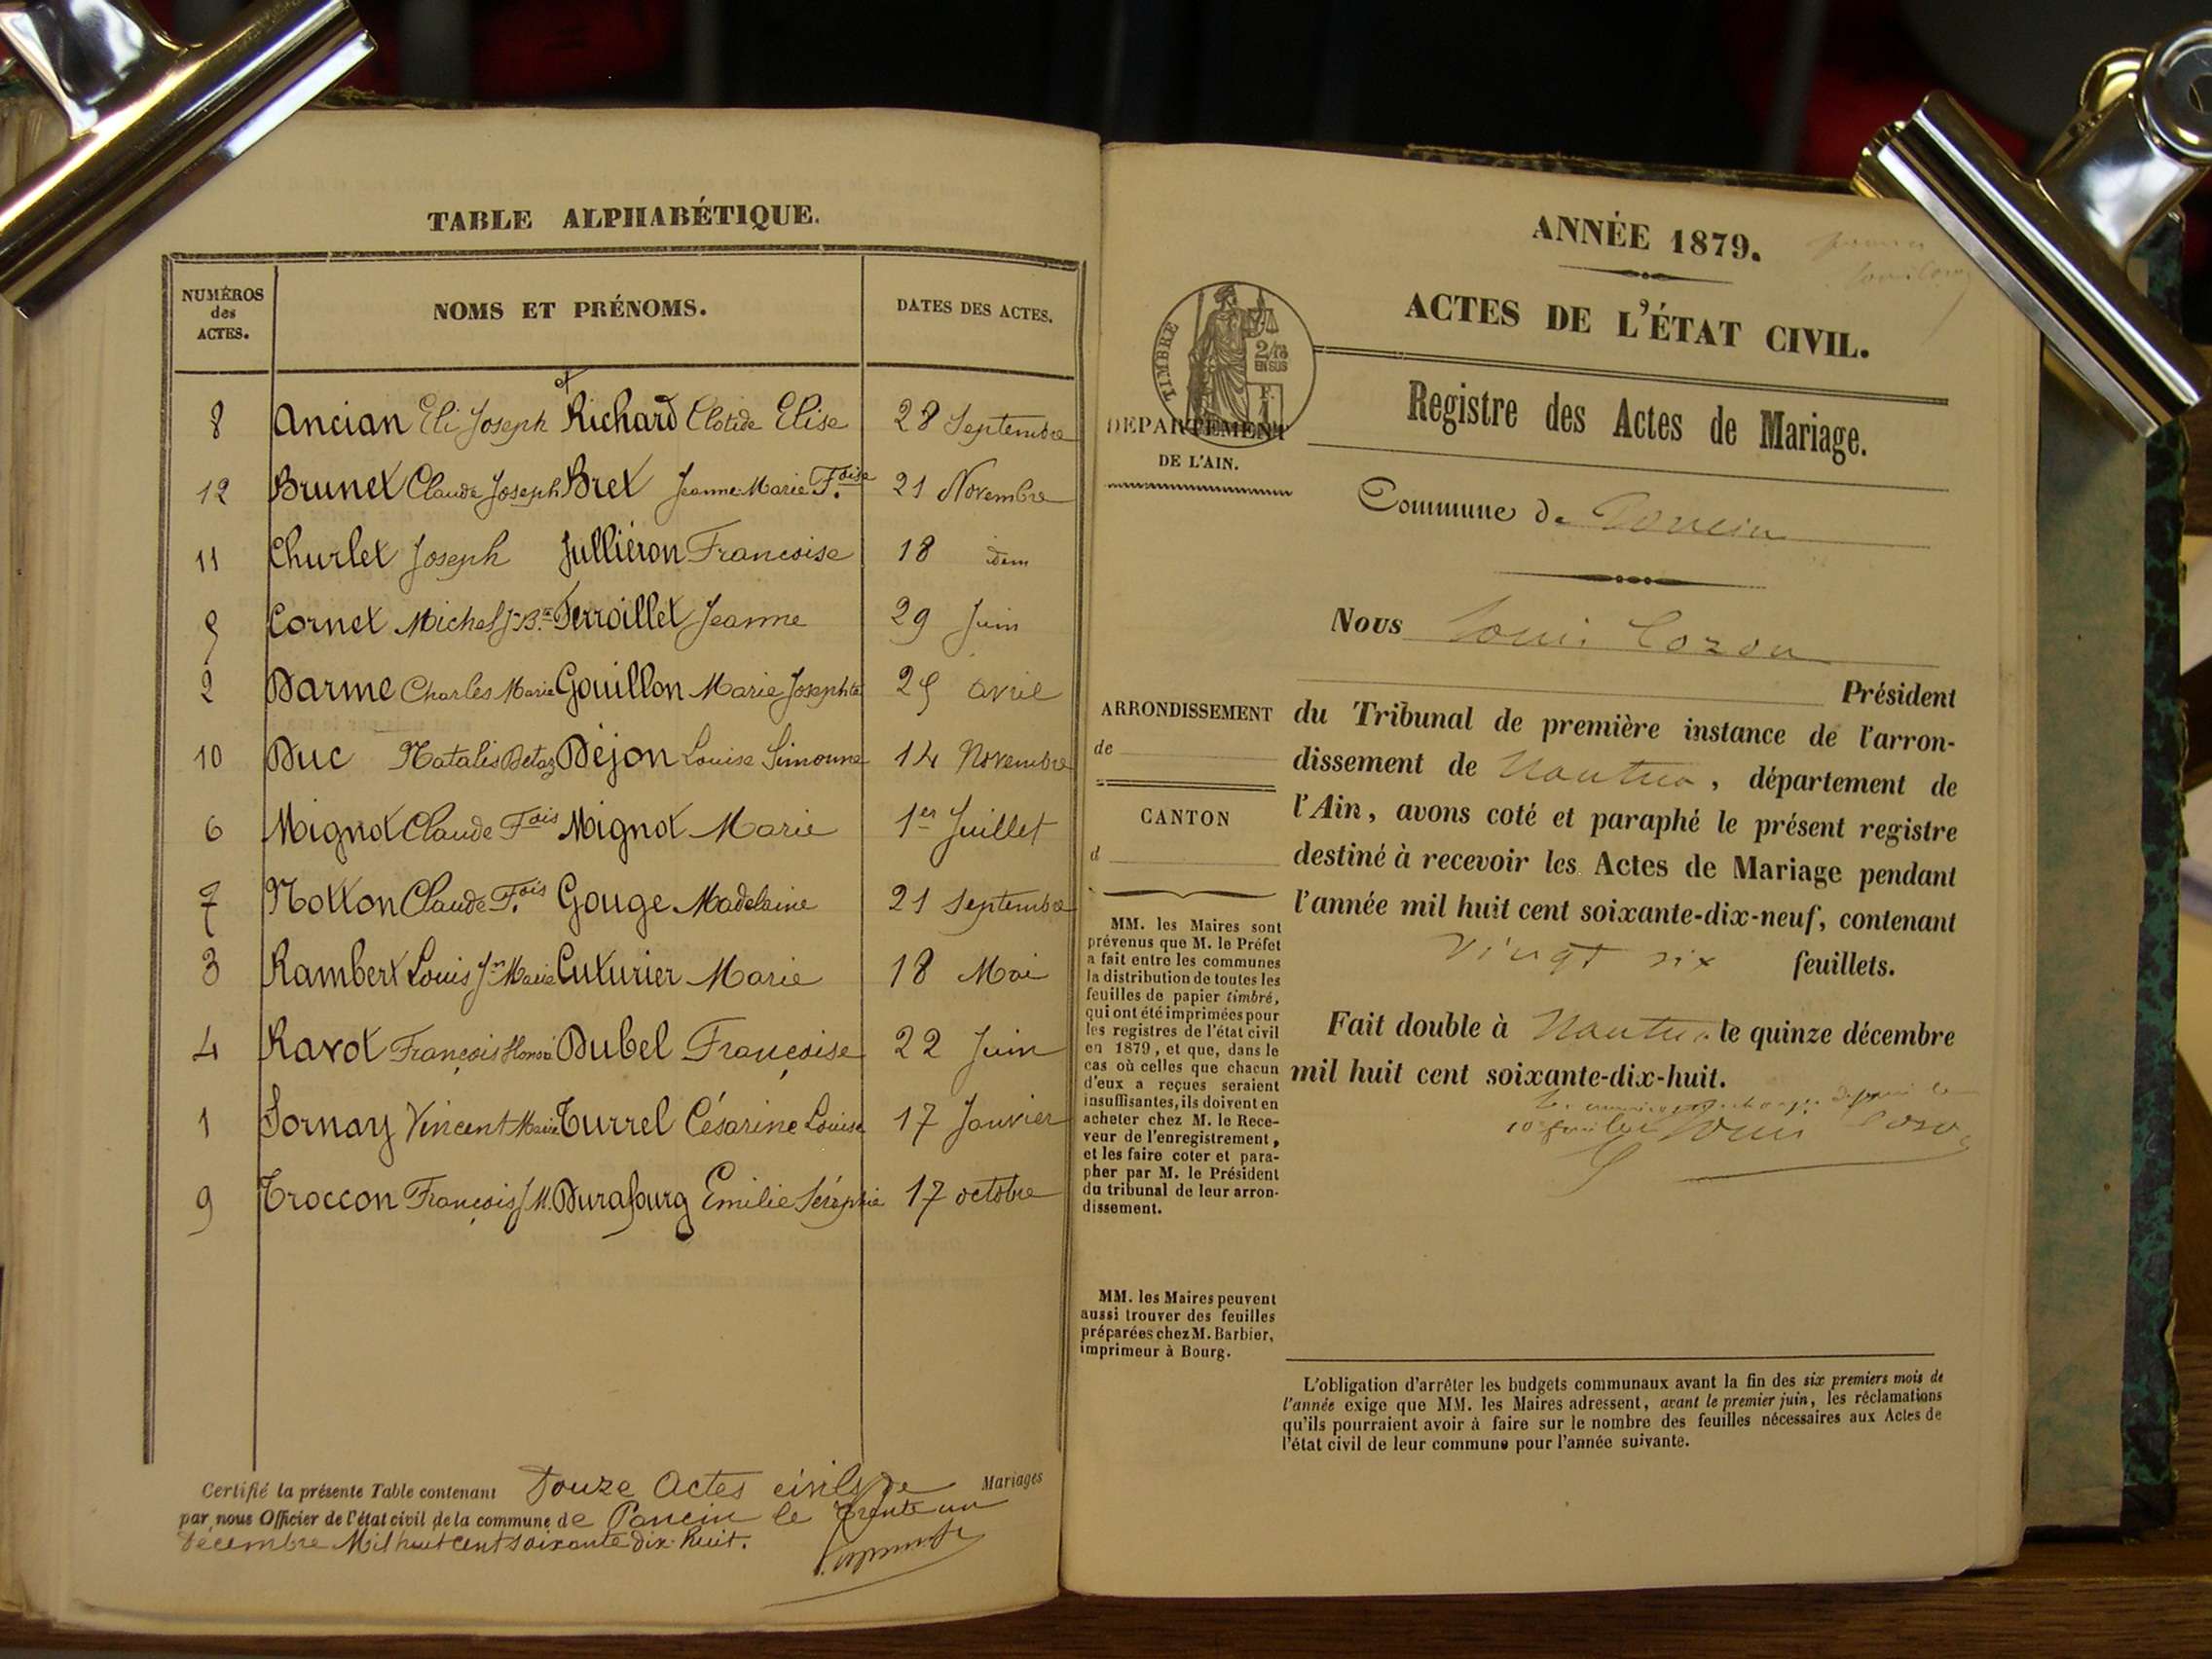 TABLE ALPHABÉTIQUE.
NUMÉROS des ACTES. NOMS ET PRÉNOMS. DATES DES ACTES.
et
8 Ancian Eli Joseph Richard Clotide Elise 28 Septembre
12 Brunet Claude Joseph Bret Jeanne Marie F.oise 21 Novembre
11 Churlet Joseph Julliéron Francoise 18 idem
5 Cornet Michel J-B.te Ferroillet Jeanne 29 Juin
2 Darme Charles Marie Gouillon Marie Josephte 25 avril
10 Duc Natalis Betaz Déjon Louise Simonne 14 Novembre
6 Mignot Claude Fois Mignot Marie 1er Juillet
7 Notton Claude F.ois Gouge Madelaine 21 Septembre
3 Rambert Louis Jn Marie Cuturier Marie 18 Mai
4 Ravot François Honoré Dubel Françoise 22 Juin
1 Sornay Vincent Marie Turrel Césarine Louise 17 Janvier
9 Troccon François J.M. Durafourg Emilie Séraphie 17 octobre
Certifié la présente Table contenant Douze Actes civils de Mariages
par nous Officier de l'état civil de la commune de Poncin le trente un
décembre Mil huit cent soixante dix huit.
ANNÉE 1879.
ACTES DE L'ÉTAT CIVIL.
TIMBRE
2/10
EN SUS
DÉPARTEMENT
DE L'AIN.
Registre des Actes de Mariage.
Commune de Poncin
Nous Louis Cozon
Président
ARRONDISSEMENT
de
CANTON
d
du Tribunal de première instance de l'arron-
dissement de Nantua, département de
l'Ain, avons coté et paraphé le présent registre
destiné à recevoir les Actes de Mariage pendant
l'année mil huit cent soixante-dix-neuf, contenant
vingt six feuillets.
Fait double à Nantua le quinze décembre
mil huit cent soixante-dix-huit.
Louis Cozon
MM. les Maires sont
prévenus que M. le Préfet
a fait entre les communes
la distribution de toutes les
feuilles de papier timbré,
qui ont été imprimées pour
les registres de l'état civil
en 1879, et que, dans le
cas où celles que chacun
d'eux a reçues seraient
insuffisantes, ils doivent en
acheter chez M. le Rece-
veur de l'enregistrement,
et les faire coter et para-
pher par M. le Président
du tribunal de leur arron-
dissement.
MM. les Maires peuvent
aussi trouver des feuilles
préparées chez M. Barbier,
imprimeur à Bourg.
L'obligation d'arrêter les budgets communaux avant la fin des six premiers mois de
l'année exige que MM. les Maires adressent, avant le premier juin, les réclamations
qu'ils pourraient avoir à faire sur le nombre des feuilles nécessaires aux Actes de
l'état civil de leur commune pour l'année suivante.